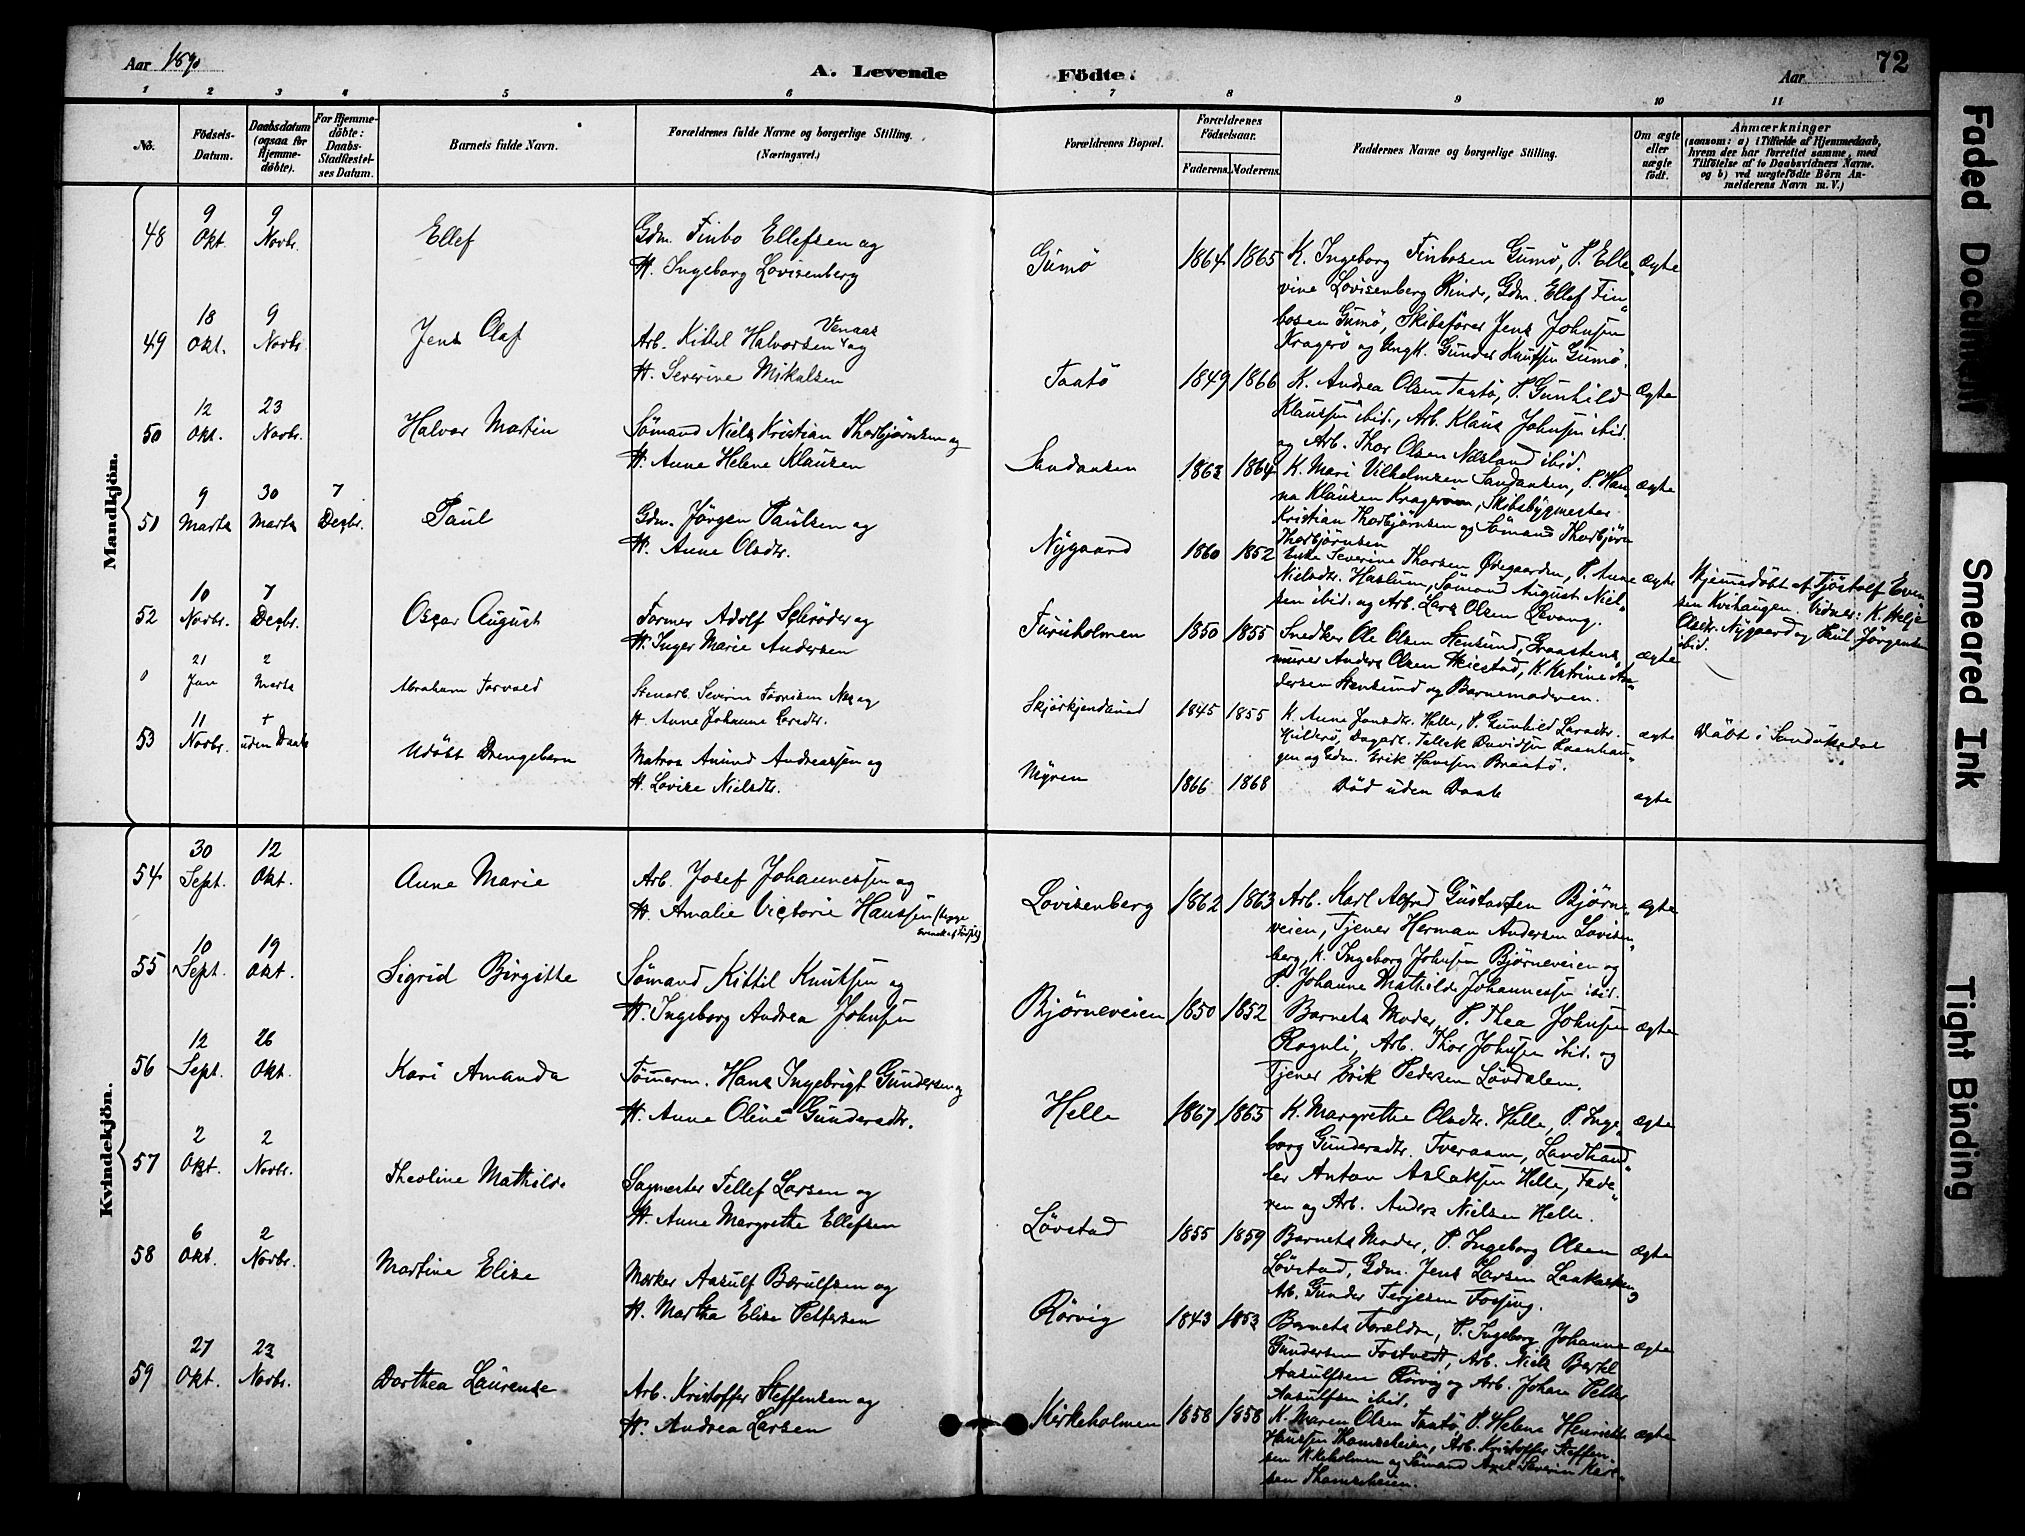 Aar 1890
A. Levende
Födte.
Aar
72
1 2 3 4 5 6 7 8 9 10 11
No.
Födsels-Datum.
Daabsdatum (ogsaa for Hjemme-döbte).
For Hjemme-döbte: Daabs-Stadfæstel-ses Datum.
Barnets fulde Navn.
Forældrenes fulde Navne og borgerlige Stilling.
(Næringsvei.)
Forældrenes Bopæl.
Forældrenes Födselsaar.
Faderens. Moderens.
Faddernes Navne og borgerlige Stilling.
Om ægte eller uægte födt.
Anmærkninger
(saasom: a) i Tilfælde af Hjemmedaab,
hvem der har forrettet samme, med
Tilföielse af to Daabsvidners Navne.
og b) ved uægtefödte Börn An-
melderens Navn m. V.)
Mandkjön.
48 9 Okt. 9 Novbr. Ellef
Gdm. Finbo Ellefsen og
H. Ingeborg Lovisenberg
Gumö 1864 1865
K. Ingeborg Finbosen Gumö, P. Elle„ ægte
vine Lovisenberg Rinde, Gdm. Ellef Fin„
bosen Gumö, Skibsförer Jens Johnsen
Kragerö og Ungk. Gunder Knutsen Gumö.
49 18 Okt. 9 Novbr. Jens Olaf
Arb. Kittil Halvorsen Venaas og
H. Severine Mikalsen
Taatö 1849 1866
K. Andrea Olsen Taatö, P. Gunhild ægte
Klaussen ibid., Arb. Klaus Johnsen ibid.
og Arb. Thor Olsen Næsland ibid.
50 12 Okt. 23 Novbr. Halvor Martin
Sömand Niels Kristian Thorbjörnsen og
H. Anne Helene Klausen
Sandaasen 1863 1864
K. Mari Vilhelmsen Sandaasen, P. Han„ ægte
na Klausen Kragerö, Skibsbygmester
Kristian Thorbjörnsen og Sömand Thorbjörn
Thorbjörnsen
51 9 Marts 30 Marts 7 Dezbr. Paul
Gdm. Jörgen Paulsen og
H. Anne Olsdtr.
Nygaard 1860 1852
Enke Severine Thorsen Ödegaarden, P. Anne ægte
Nielsdtr. Haslum, Sömand August Niel„
sen ibid. og Arb. Lars Olsen Levang.
Hjemmedöbt af Tjöstolf Even
sen Kvihaugen. Vidner: K. Helje
Olsdtr. Nygaard og Paul Jörgensen
ibid.
52 10 Novbr. 7 Dezbr. Oscar August
Former Adolf Schröder og
H. Inger Marie Andersen
Furuholmen 1850 1855
Snedker Ole Olsen Stensund, Graastens„ ægte
murer Anders Olsen Skiestad, K. Katrine An„
dersen Stensund og Barnemoderen.
0 21 Jan 2 Marts Abraham Torvald
Stenarb. Severin Tönnisen Næs og
H. Anne Johanne Larsdtr.
Skjörkjendsund 1845 1855
K. Anne Jonsdtr. Helle, P. Gunhild Larsdtr. ægte
Hullerö, Dagarb. Tellek Davidsen Laanhau„
gen og Gdm. Erik Hansen Braatö.
Döbt i Sandökedal
53 11 Novbr. + uden Daab Udöbt Drengebarn
Matros Amund Andreassen og
H. Lovise Nielsdtr.
Myren 1866 1868
Död uden Daab
ægte
Kvindekjön.
54 30 Sept. 12 Okt. Anne Marie
Arb. Josef Johannessen og
H. Amalie Victorie Hanssen (begge
svenske af Födsel)
Lovisenberg 1862 1863
Arb. Karl Alfred Gustavsen Björne„ ægte
veien, Tjener Herman Andersen Lovisen„
berg, K. Ingeborg Johnsen Björneveien og
P. Johanne Mathilde Johannessen ibid.
55 10 Sept. 19 Okt. Sigrid Birgitte
Sömand Kittil Knutsen og
H. Ingeborg Andrea Johnsen
Björneveien 1850 1852
Barnets Moder, P. Thea Johnsen ægte
Rognli, Arb. Thor Johnsen ibid. og
Tjener Erik Pedersen Lövdalem.
56 12 Sept. 26 Okt. Kari Amanda
Tömmerm. Hans Ingebrigt Gundersen og
H. Anne Oline Gundersdtr.
Helle 1867 1865
K. Margrethe Olsdtr. Helle, P. Inge„ ægte
borg Gundersdtr. Tveraaen, Landhand„
ler Anton Aslaksen Helle, Fade„
ren og Arb. Anders Nielsen Helle.
57 2 Okt. 2 Novbr. Theoline Mathilde
Sagmester Tellef Larsen og
H. Anne Margrethe Ellefsen
Lövstad 1855 1859
Barnets Moder, P. Ingeborg Olsen ægte
Lövstad, Gdm. Jens Larsen
Arb. Gunder Terjesen Fossing.
58 6 Okt. 2 Novbr. Martine Elise
Mærker Aasulf Bærulfsen og
H. Martha Elise Pettersen
Rörvig 1843 1853
Barnets Forældre, P. Ingeborg Johanne ægte
Gundersen Fostvedt, Arb. Niels Bertel
Aasulfsen Rörvig og Arb. Johan Petter
Aasulfsen ibid.
59 27 Okt. 23 Novbr. Dorthea Laurense
Arb. Kristoffer Steffensen og
H. Andrea Larsen
Kirkeholmen 1858 1858
K. Maren Olsen Taatö, P. Helene Henriette ægte
Hanssen Thomesheien, Arb. Kristoffer Steffen„
sen Kirkeholmen og Sömand Axel Severin Karl„
sen Thomesheien.
Faded Document
Smeared Ink
Tight Binding